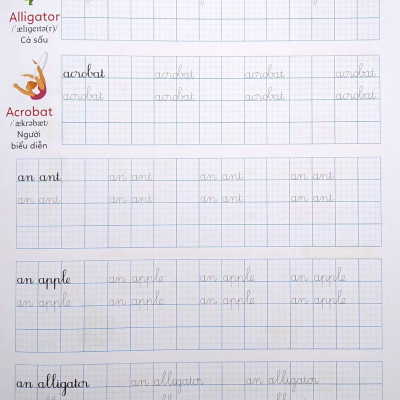 Alligator
/ˈælɪɡeɪtə(r)/
Cá sấu
acrobat acrobat acrobat acrobat
acrobat acrobat acrobat acrobat
Acrobat
/ˈækrəbæt/
Người
biểu diễn
an ant an ant an ant an ant
an ant an ant an ant an ant
an apple an apple an apple an apple
an apple an apple an apple an apple
an alligator an alligator an alligator
an alligator an alligator an alligator